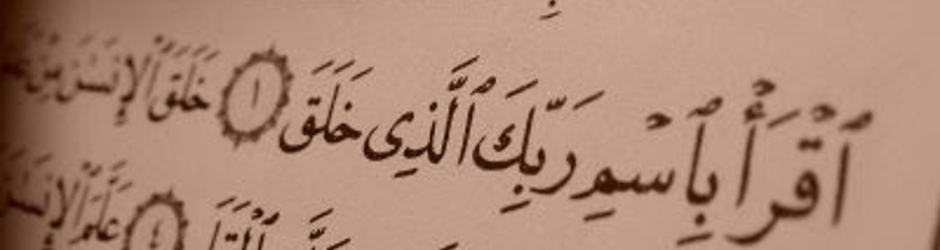 ٱقْرَأْ بِٱسْمِ رَبِّكَ ٱلَّذِى خَلَقَ ١ خَلَقَ ٱلْإِنسَٰنَ مِنْ
٤ عَلَّمَ ٱلْإِنسَٰنَ